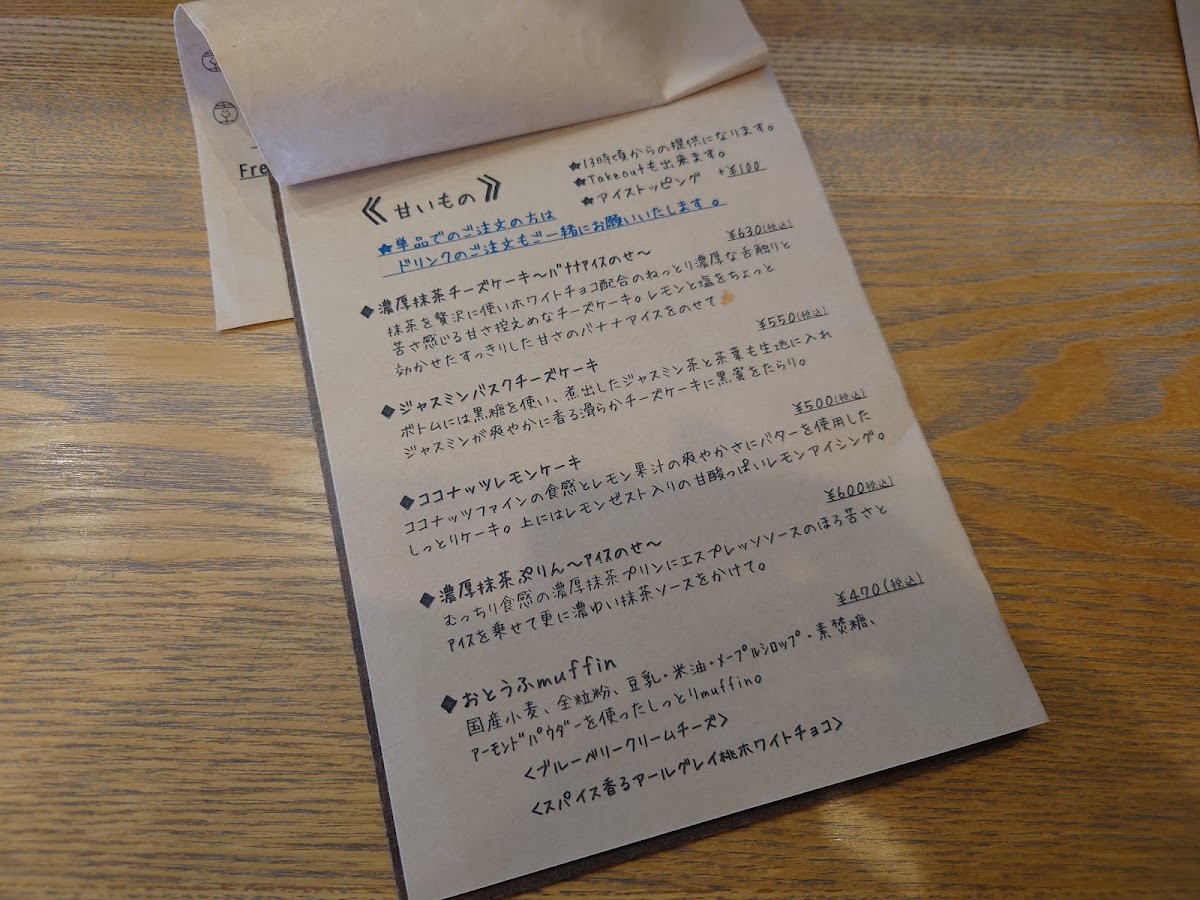 Fre
《甘いもの》
★13時頃からの提供になります。
★Takeoutも出来ます。
★アイストッピング +¥100
★単品でのご注文の方は
ドリンクのご注文もご一緒にお願いいたします。
¥630(税込)
◆濃厚抹茶チーズケーキ〜バナナアイスのせ〜
抹茶を贅沢に使いホワイトチョコ配合のねっとり濃厚な舌触りと
苦さ感じる甘さ控えめなチーズケーキ。レモンと塩をちょっと
効かせたすっきりした甘さのバナナアイスをのせて
¥550(税込)
◆ジャスミンバスクチーズケーキ
ボトムには黒糖を使い、煮出したジャスミン茶と茶葉も生地に入れ
ジャスミンが爽やかに香る滑らかチーズケーキに黒蜜をたらり。
¥500(税込)
◆ココナッツレモンケーキ
ココナッツファインの食感とレモン果汁の爽やかさにバターを使用した
しっとりケーキ。上にはレモンゼスト入りの甘酸っぱいレモンアイシング。
¥600(税込)
◆濃厚抹茶ぷりん〜アイスのせ〜
むっちり食感の濃厚抹茶プリンにエスプレッソソースのほろ苦さと
アイスを乗せて更に濃ゆい抹茶ソースをかけて。
¥470(税込)
◆おとうふmuffin
国産小麦、全粒粉、豆乳・米油・メープルシロップ・素焚糖、
アーモンドパウダーを使ったしっとりmuffin。
<ブルーベリークリームチーズ>
<スパイス香るアールグレイ桃ホワイトチョコ>